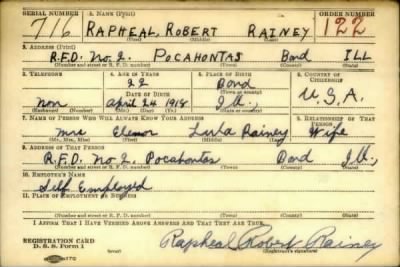 SERIAL NUMBER 1. NAME (Print) ORDER NUMBER
716 RAPHEAL, ROBERT RAINEY 122
(First) (Middle) (Last)
2. ADDRESS (Print)
R.F.D. No. 2. POCAHONTAS Bond ILL
(Number and street or R. F. D. number) (Town) (County) (State)
3. TELEPHONE 4. AGE IN YEARS 5. PLACE OF BIRTH 6. COUNTRY OF CITIZENSHIP
22 Bond
DATE OF BIRTH (Town or county)
Non April 24 1918 Ill., U.S.A.
(Exchange) (Number) (Mo.) (Day) (Yr.) (State or country)
7. NAME OF PERSON WHO WILL ALWAYS KNOW YOUR ADDRESS 8. RELATIONSHIP OF THAT PERSON
Mrs Elenor Lula Rainey Wife
(Mr., Mrs., Miss) (First) (Middle) (Last)
9. ADDRESS OF THAT PERSON
R.F.D. No. 2. Pocahontas Bond Ill.,
(Number and street or R. F. D. number) (Town) (County) (State)
10. EMPLOYER'S NAME
Self Employed
11. PLACE OF EMPLOYMENT OR BUSINESS
(Number and street or R. F. D. number) (Town) (County) (State)
I AFFIRM THAT I HAVE VERIFIED ABOVE ANSWERS AND THAT THEY ARE TRUE.
REGISTRATION CARD
D. S. S. Form 1
Rapheal Robert Rainey
(Registrant's signature)